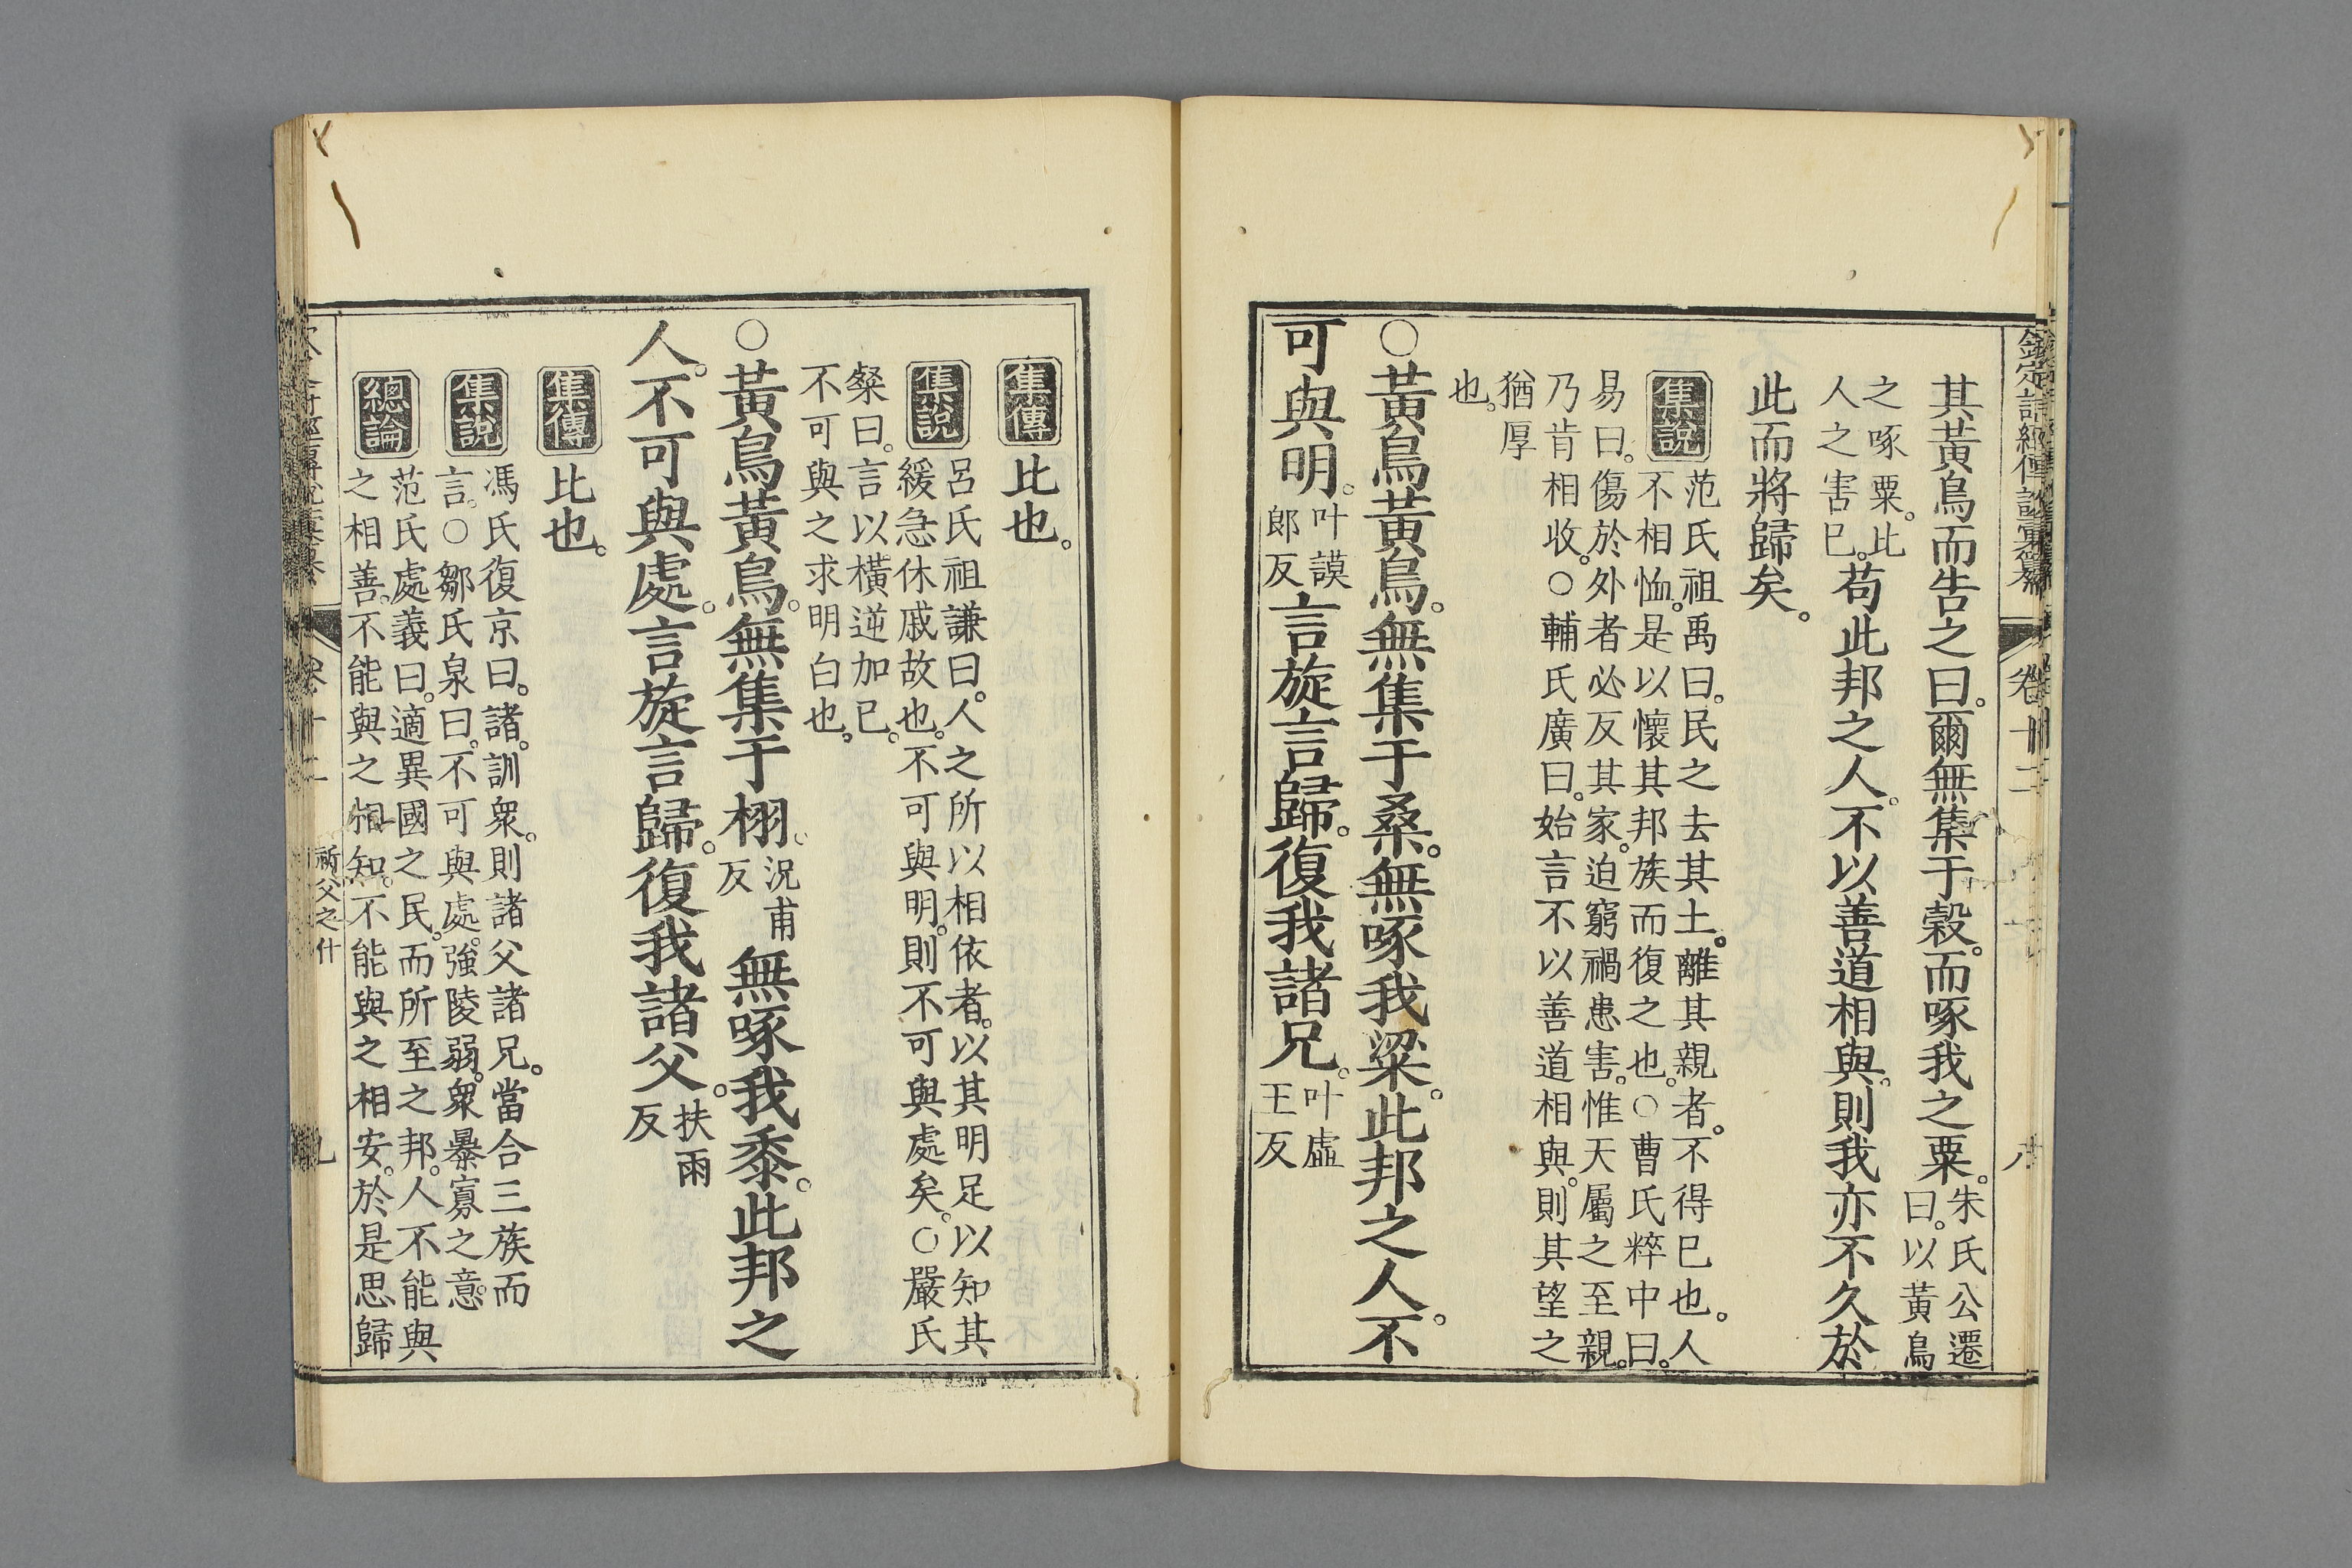 欽定詩經傳說彙纂 卷十二 八
其黃鳥而告之曰。爾無集于穀。而啄我之粟。朱氏公遷
曰。以黃鳥
之啄粟。比
人之害已。苟此邦之人。不以善道相與。則我亦不久於
此而將歸矣。
集說 范氏祖禹曰。民之去其土。離其親者。不得已也。人
不相恤。是以懷其邦族而復之也。○曹氏粹中曰。
易曰。傷於外者必反其家。迫窮禍患害。惟天屬之至親。
乃肯相收。○輔氏廣曰。始言不以善道相與。則其望之
猶厚
也。
○黃鳥黃鳥。無集于桑。無啄我粱。此邦之人。不
可與明。叶謨
郎反 言旋言歸。復我諸兄。叶虛
王反
集傳 比也。
集說 呂氏祖謙曰。人之所以相依者。以其明足以知其
緩急休戚故也。不可與明。則不可與處矣。○嚴氏
粲曰。言以橫逆加已。
不可與之求明白也。
○黃鳥黃鳥。無集于栩。況甫
反 無啄我黍。此邦之
人。不可與處。言旋言歸。復我諸父。扶雨
反
集傳 比也。
集說 馮氏復京曰。諸。訓衆。則諸父諸兄。當合三族而
言。○鄒氏泉曰。不可與處。強陵弱。衆暴寡之意。
總論 范氏處義曰。適異國之民。而所至之邦。人不能與
之相善。不能與之相知。不能與之相安。於是思歸
卷十二 祈父之什 九